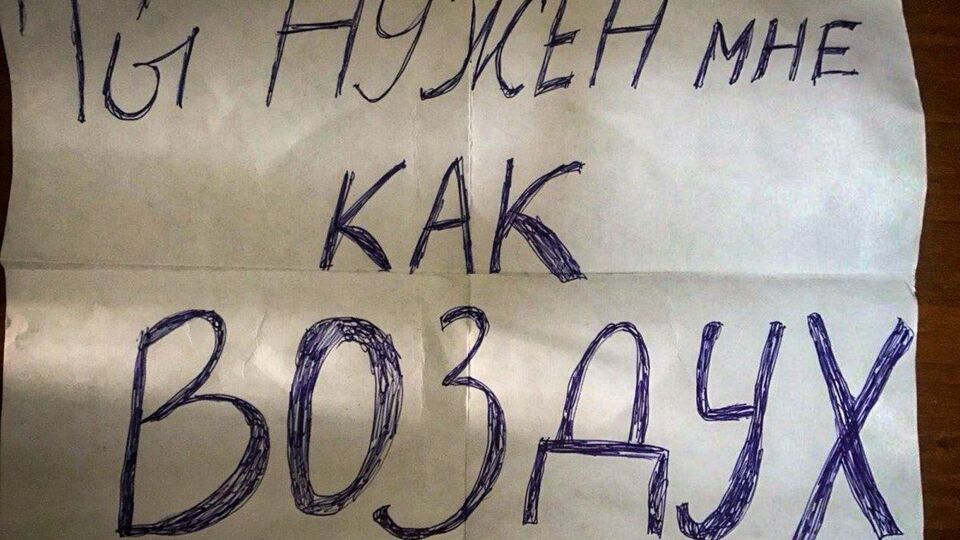 ТЫ НУЖЕН МНЕ
КАК
ВОЗДУХ